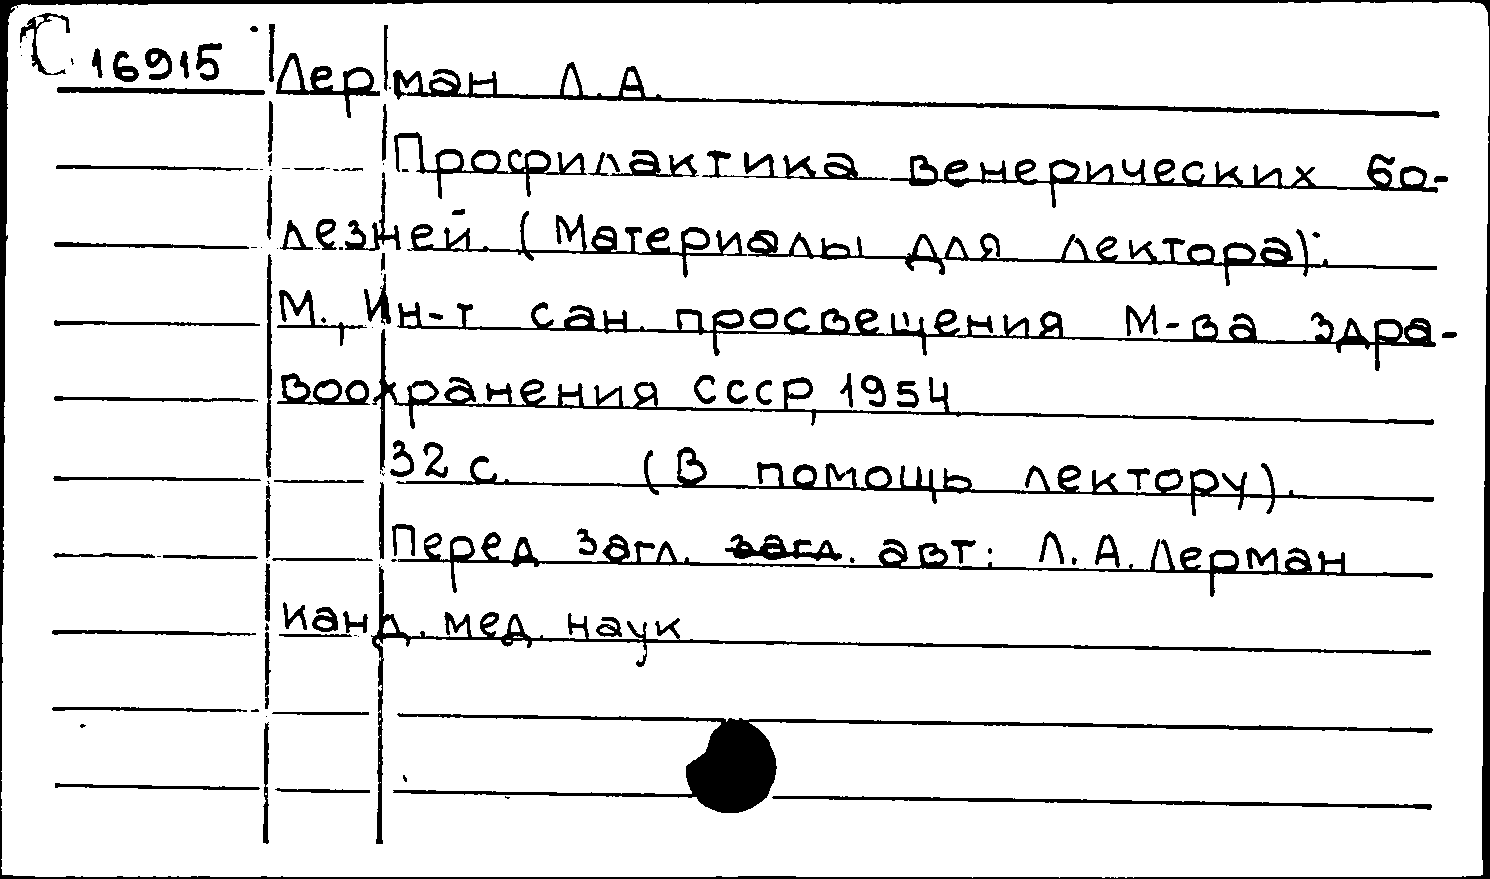 С 16915 Лерман Л.А.
Профилактика венерических бо-
лезней. (Материалы для лектора).
М., Ин-т сан. просвещения М-ва здра-
воохранения СССР, 1954
32 с. (В помощь лектору).
Перед загл. загл. авт: Л.А. Лерман
канд. мед. наук